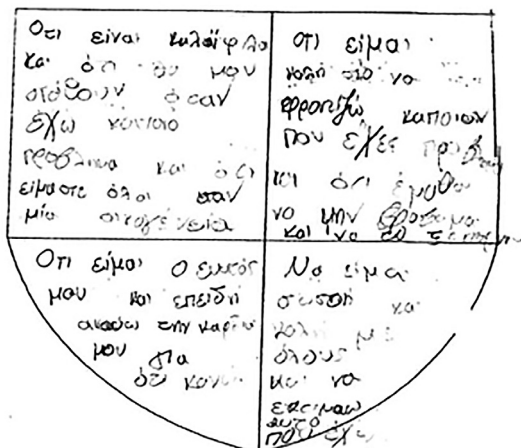 Οτι είναι καλοί φίλοι
και ότι θα μου
σταθούν όταν
έχω κάποιο
πρόβλημα και ότι
είμαστε όλοι σαν
μία οικογένεια
Οτι είμαι
καλή στο να
φροντίζω κάποιον
που έχει
και ότι έμαθα
να μην
και να το
Οτι είμαι ο εαυτός
μου και επειδή
ακούω την καρδιά
μου για
ότι κάνω
Να είμαι
σωστή και
καλή με
όλους
και να
εκτιμάω
αυτό
που έχω